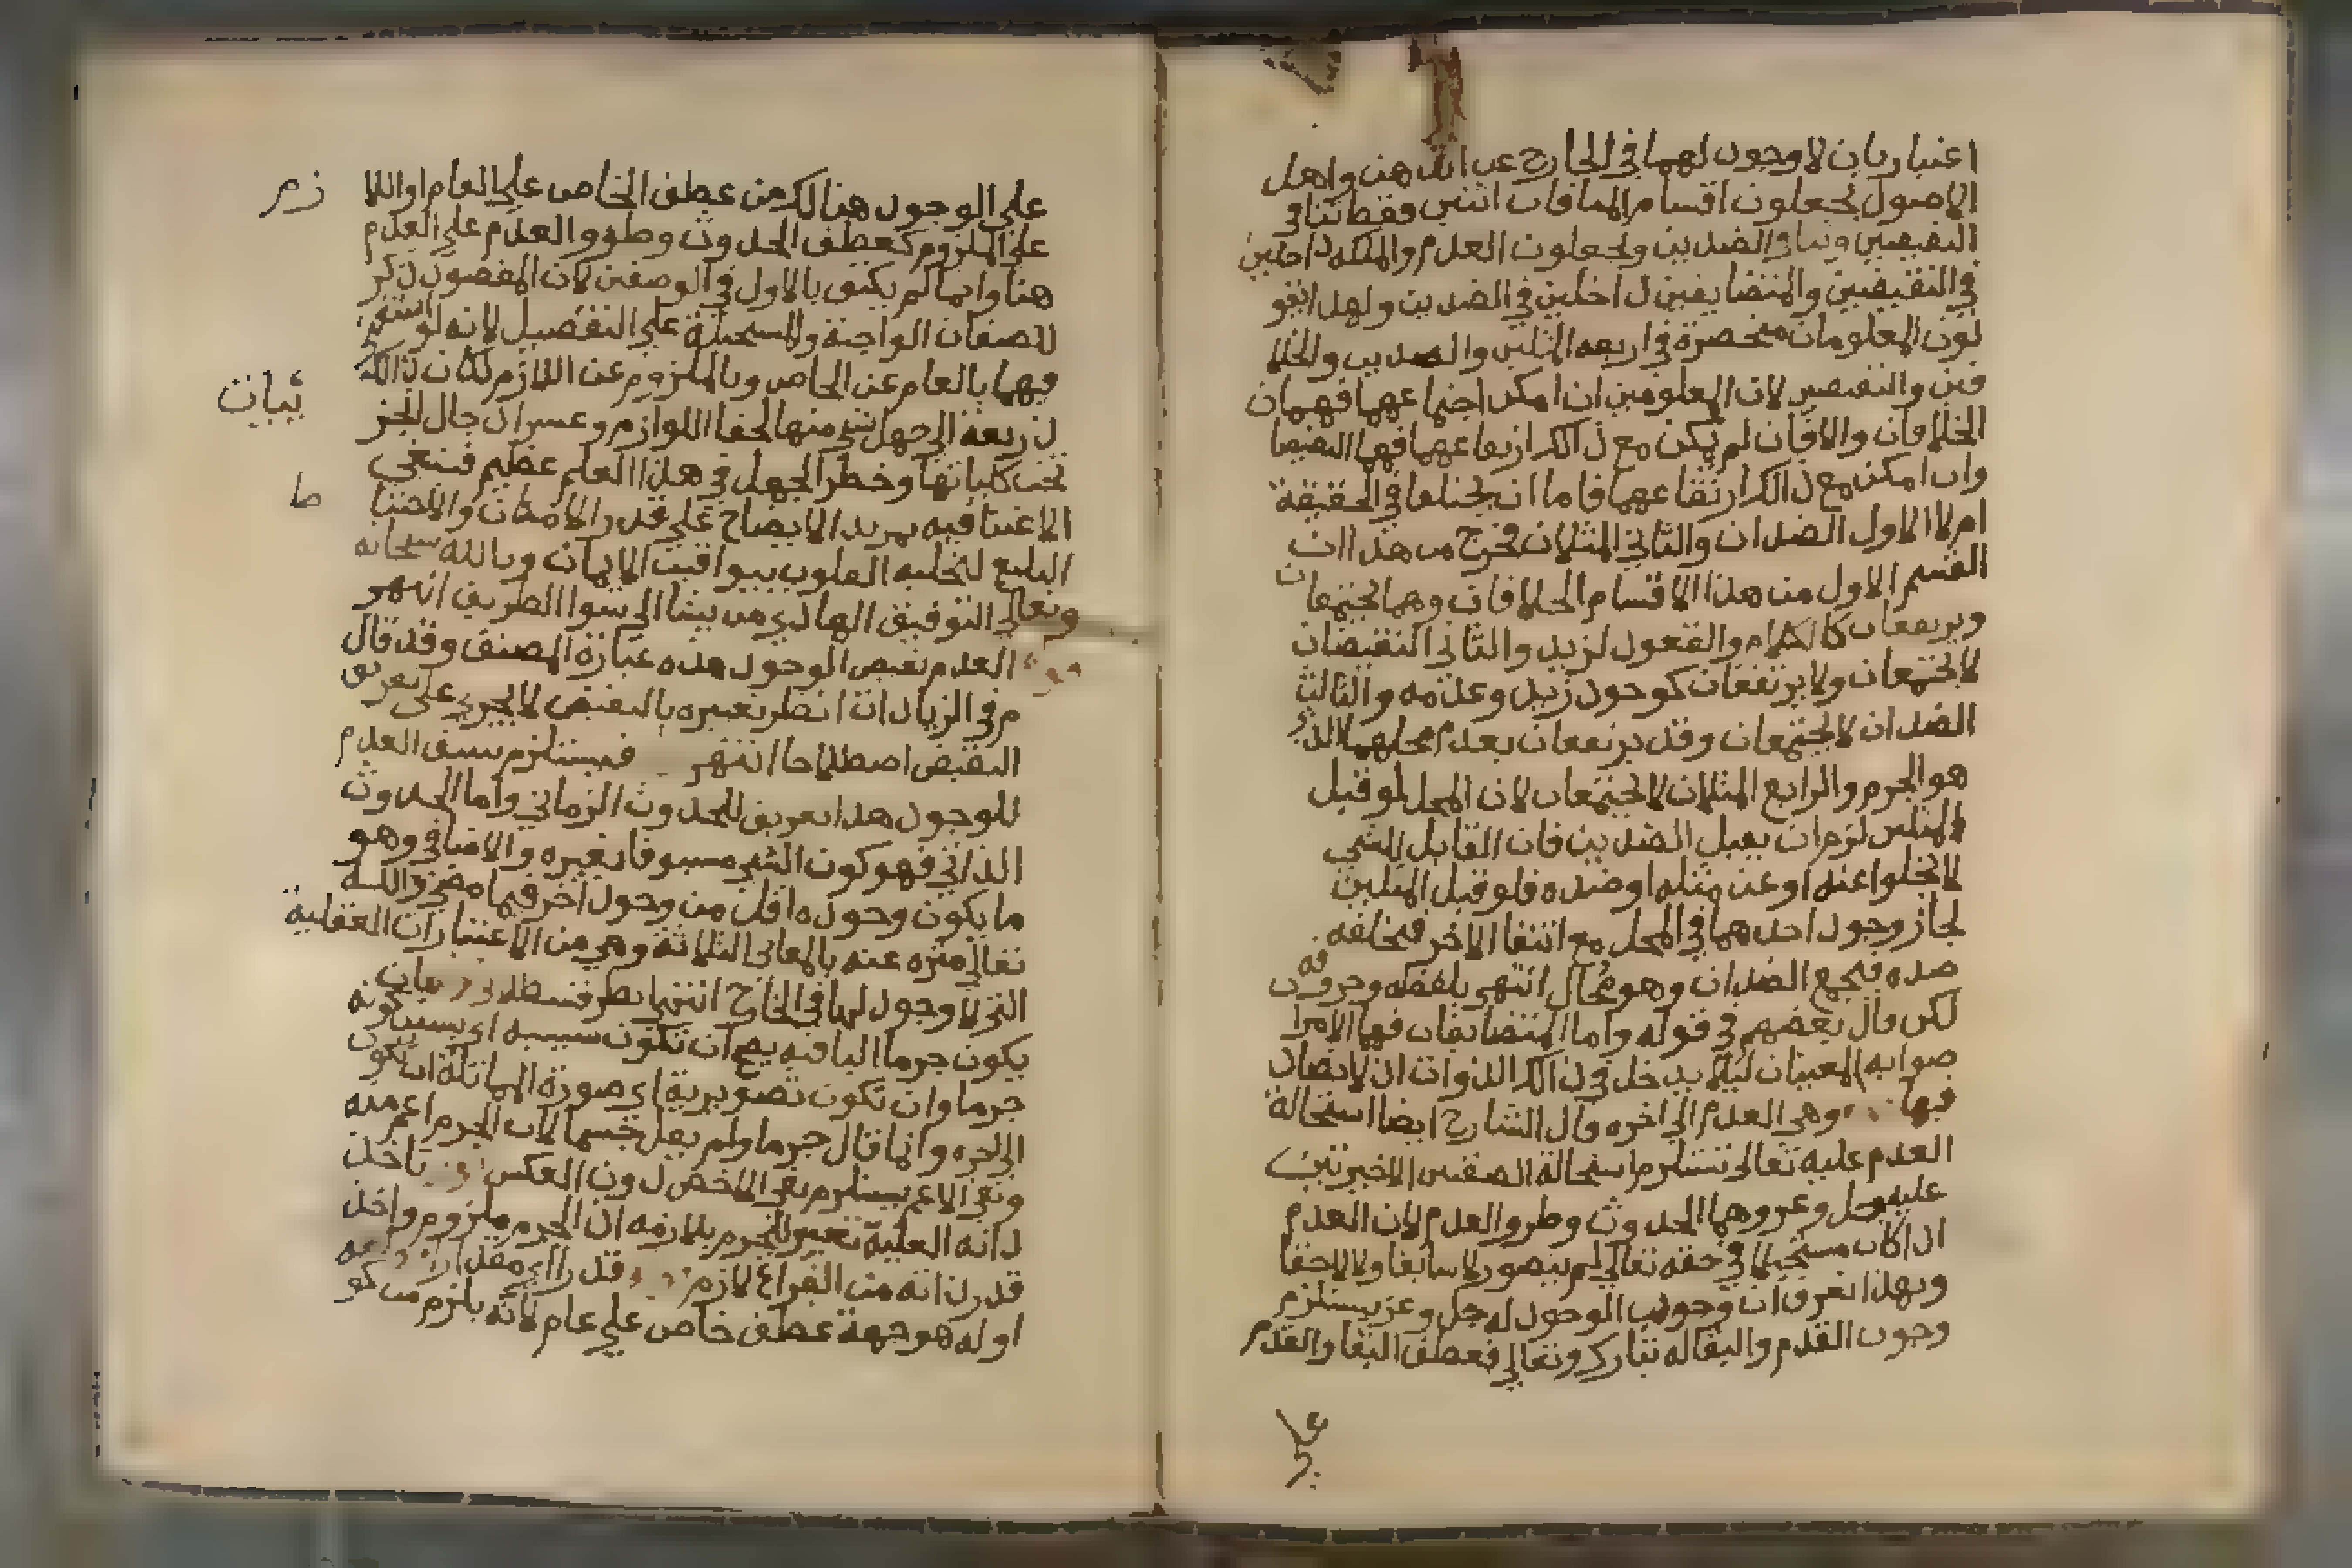 اعتباريان لا وجود لهما في الخارج عن الذهن واهل
الاصول يجعلون اقسام المنافات اثنين فقط تنافي
النقيضين وتنافي الضدين ويجعلون العدم والملكه داخلين
في النقيضين والمتضايفين داخلين في الضدين ولهذا
لون المعلومات منحصرة في اربعه المثلين والضدين والخلا
فين والنقيضين لان المعلومين ان امكن اجتماعهما فهمان
الخلافان والافان لم يكن مع ذالك ارتفاعهما فهما النقيضا
وان امكن مع ذالك ارتفاعهما فاما ان يختلفا في الحقيقة
ام لا الاول الضدان والثاني المثلان فخرج من هذا ان
القسم الاول من هذا الاقسام الخلافان وهما يجتمعان
ويرتفعان كالكلام والقعود لزيد والثاني النقيضان
لا يجتمعان ولا يرتفعان كوجود زيد وعدمه والثالث
الضدان لا يجتمعان وقد يرتفعان بعدم محلهما الذي
هو الجرم والرابع المثلان لا يجتمعان لان المحل لو قبل
المثلين لزم ان يقبل الضدين فان القابل للشيء
لا يخلوا عنه او عن مثله او ضده فلو قبل المثلين
لجاز وجود احدهما في المحل مع انتفا الاخر فيخلفه
ضده فيجمع الضدان وهو محال انتهى بلفظه وحروفه
لكن قال بعضهم في قوله واما المتضايفان فهما الامرا
صوابه المعنيان ليلا يدخل في ذالك الذوات اذ لا تضاد
فيها وهي العدم الى اخره قال الشارح ايضا استحالة
العدم عليه تعالى تستلزم استحالة الصفتين الاخيرتين
عليه جل وعز وهما الحدوث وطرو العدم لان العدم
اذا كان مستحيلا في حقه تعالى لم يتصور لا سابقا ولا لاحقا
وبهذا تعرف ان وجوب الوجود له جل وعز يستلزم
وجوب القدم والبقا له تبارك وتعالى فعطف البقا والقدم
على الوجود هنالك من عطف الخاص على العام او اللا
زم
على الملزوم كعطف الحدوث وطرو العدم على العدم
هنا وانما لم يكتف بالاول في الوصفين لان المقصود ذكر
الصفات الواجبة والمستحيلة على التفصيل لانه لو استغنى
فيها بالعام عن الخاص وبالملزوم عن اللازم لكان ذالك
ذريعة الى جهل شيء منها لخفا اللوازم وعسر ادخال الجز
ئيات
تحت كلياتها وخطر الجهل في هذا العلم عظيم فينبغي
الاعتنا فيه بمزيد الايضاح على قدر الامكان والاحتيا
ط
البليغ لتحليه القلوب بيواقيت الايمان وبالله سبحانه
وتعالى التوفيق الهادي من يشا الى سوا الطريق انتهى
العدم نقيض الوجود هذه عبارة المصنف وقد قال
م في الزيادات انظر تعبيره بالنقيض لا يجري على تعريف
النقيض اصطلاحا انتهى فيستلزم سبق العدم
للوجود هذا تعريف للحدوث الزماني واما الحدوث
الذاتي فهو كون الشيء مسبوقا بغيره والاضافي وهو
ما يكون وجوده اقل من وجود اخر فيما مضى والله
تعالى منزه عنه بالمعاني الثلاثة وهي من الاعتبارات العقلية
التي لا وجود لها في الخارج انتهى
يكون جرما الباء فيه يصح ان تكون سببيه اي بسبب كونه
جرما وان تكون تصويرية اي صورة المماثلة ان يكون
الى اخره وانما قال جرما ولم يقل جسما لان الجرم اعم منه
ونفي الاعم يستلزم نفي الاخص دون العكس تاخذ
ذاته العلية تفسير للجرم بلازمه اذ الجرم ملزوم واخذ
قدر ذاته من الفراغ لازم قدرا اي مقدارا
او له هو جهة عطف خاص على عام لانه يلزم من كو